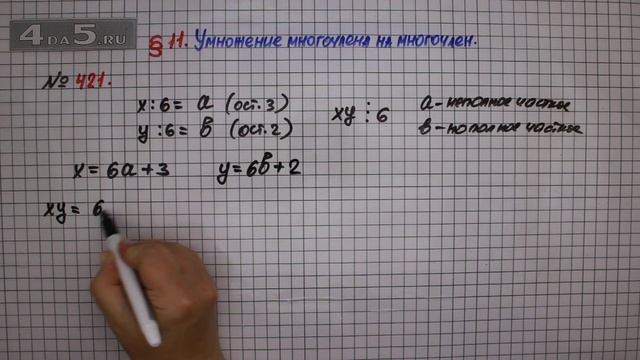 4DA5.RU
§ 11. Умножение многочлена на многочлен.
№ 421.
x : 6 = a (ост. 3)
y : 6 = b (ост. 2)
xy ⋮ 6
a - неполное частное
b - неполное частное
x = 6a + 3 y = 6b + 2
xy = 6